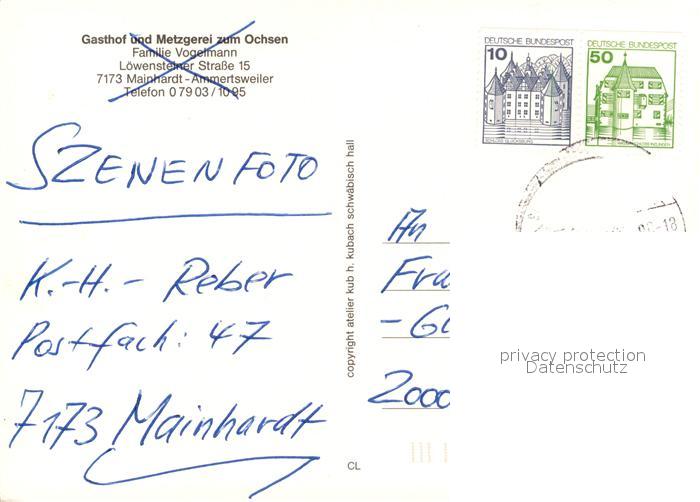 Gasthof und Metzgerei zum Ochsen
Familie Vogelmann
Löwensteiner Straße 15
7173 Mainhardt-Ammertsweiler
Telefon 0 79 03 / 10 95
SZENENFOTO
K.-H.- Reber
Postfach: 47
7173 Mainhardt
copyright atelier kub h. kubach schwäbisch hall
CL
DEUTSCHE BUNDESPOST
10
SCHLOSS GLÜCKSBURG
DEUTSCHE BUNDESPOST
50
An
Fra
2000
privacy protection
Datenschutz